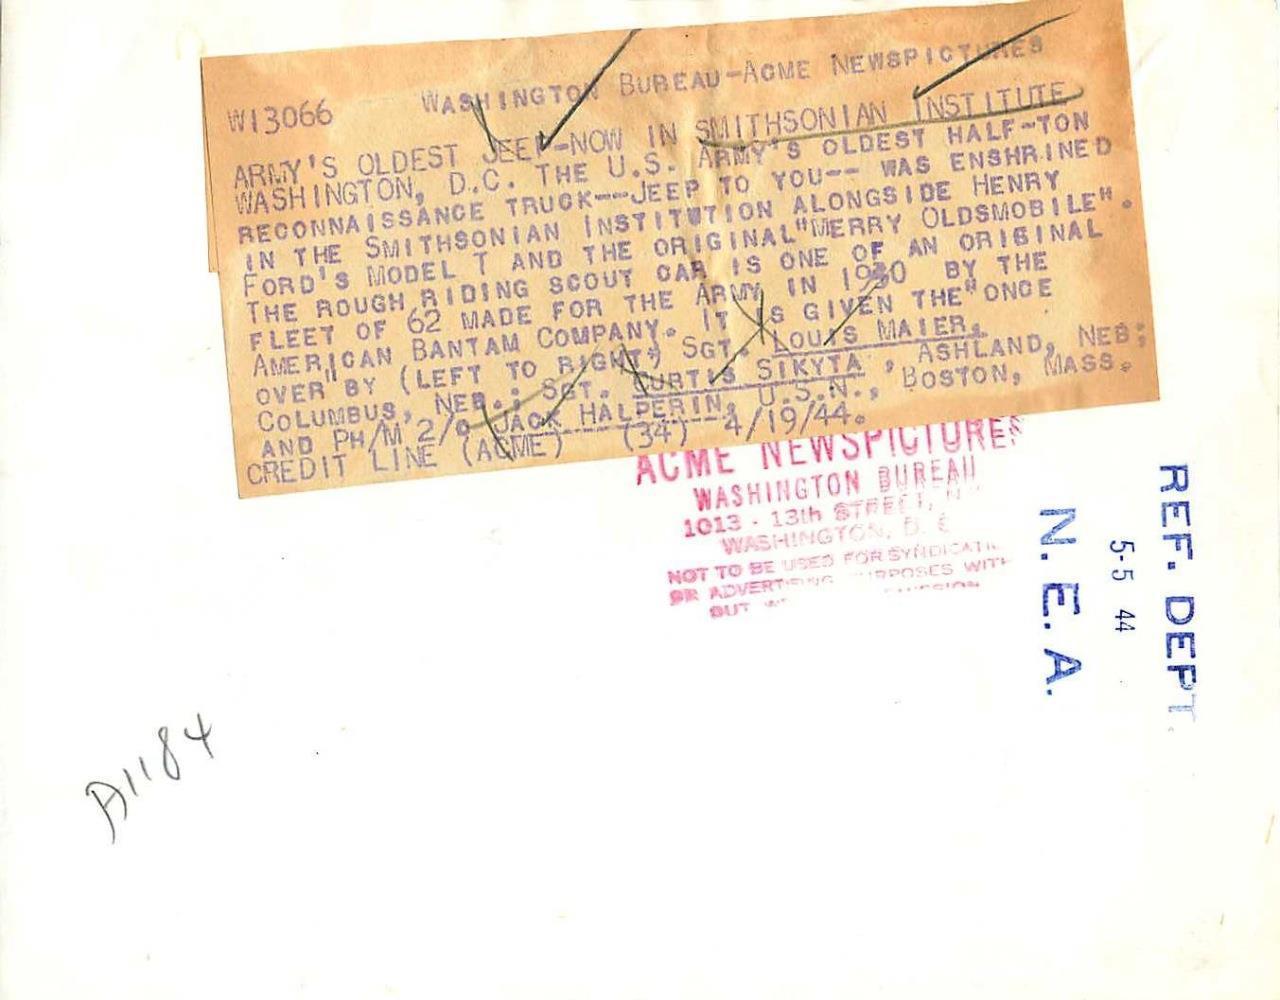 W13066 WASHINGTON BUREAU-ACME NEWSPICTURES
ARMY'S OLDEST JEEP-NOW IN SMITHSONIAN INSTITUTE
WASHINGTON, D.C. THE U.S. ARMY'S OLDEST HALF-TON
RECONNAISSANCE TRUCK--JEEP TO YOU-- WAS ENSHRINED
IN THE SMITHSONIAN INSTITUTION ALONGSIDE HENRY
FORD'S MODEL T AND THE ORIGINAL "MERRY OLDSMOBILE".
THE ROUGH RIDING SCOUT CAR IS ONE OF AN ORIGINAL
FLEET OF 62 MADE FOR THE ARMY IN 1930 BY THE
AMERICAN BANTAM COMPANY. IT IS GIVEN THE "ONCE
OVER" BY (LEFT TO RIGHT) SGT. LOUIS MAIER,
COLUMBUS, NEB.; SGT. CURTIS SIKYTA, ASHLAND, NEB;
AND PH/M 2/C JACK HALPERIN, U.S.N., BOSTON, MASS.
CREDIT LINE (ACME) (34) 4/19/44.
ACME NEWSPICTURES
WASHINGTON BUREAU
1013 - 13th STREET, N
WASHINGTON, D. C
NOT TO BE USED FOR SYNDICATI
OR ADVERTISING PURPOSES WITH
OUT
REF. DEPT.
5-5 44
N. E. A.
A1184